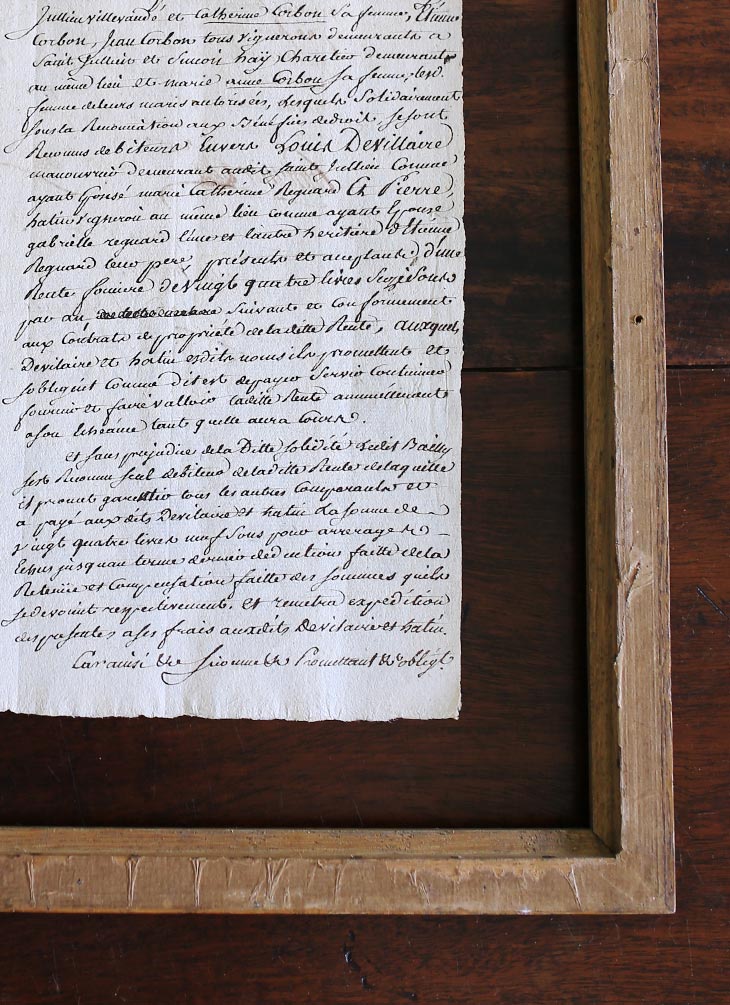 Jullien villevaudé et Catherine Corbon sa femme, Etienne
Corbon, Jean Corbon tous vignerons demeurants a
Saint Jullien et Simon haÿ Charetier demeurant
au même lieu et marie anne Corbon sa femme, les d.
femme de leurs maris autorisées, Lesquels Solidairement
sous la Renonciation aux Bénéfices de droit se sont
Reconnus debiteurs Envers Louis Devillaire
manouvrier demeurant audit Saint Jullien Comme
ayant Epousé marie Catherine Regnard Et Pierre
hatin vigneron au même lieu comme ayant Epousé
gabrielle regnard l'une et l'autre heritière d'Etienne
Regnard leur pere, présents et acceptants d'une
Rente fonciere de vingt quatre livres Seize Sous
par an suivante et conformement
aux Contrats de propriété de la dette Rente, auxquels
Devilaire et hatin esdits noms ils promettent et
s'obligent Comme dit est de payer servir Continuer
fournir et faire valloir ladite Rente annuellement
a son Echéance tant quelle aura Cours.
et sans prejudice de la Ditte solidité Ledit Bailly
s'est Reconnu seul debiteur de laditte Rente de laquelle
il promet garentir tous les autres Comparants et
a payé auxdits Devilaire et hatin La somme de
vingt quatre livres neuf Sous pour arrerages
Echus jusqu'au terme dernier deduction faitte de la
Retenüe et Compensation faitte des sommes quils
se devoient respectivement. et remettra expédition
des presentes a ses frais auxdits Devilaire et hatin.
Car ainsi &c Promettant &c obligt.